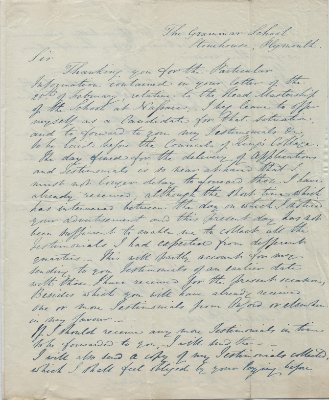 The Grammar School
Stonehouse, Plymouth.
Sir
Thanking you for the Particular
Information contained in your letter of the
of February, relating to the Head Mastership
of the School at Nassau, I beg leave to offer
myself as a Candidate for that situation,
and to forward to you my Testimonials &c,
to be laid before the Council of King's College.
The day fixed for the delivery of Applications
and Testimonials is so near at hand that I
must not longer delay to forward those I have
already received, although the short time which
has intervened between the day on which I noticed
your advertisement and this present day has not
been sufficient to enable me to collect all the
Testimonials I had expected from different
quarters. This will partly account for my
sending to you Testimonials of an earlier date
with those I have received for the present occasion,
Besides which you will have already received
one or more Testimonials from Oxford or elsewhere
in my favour.
If I should receive any more Testimonials in time
to be forwarded to you, I will send them
I will also send a copy of my Testimonials collected,
which I shall feel obliged by your laying before